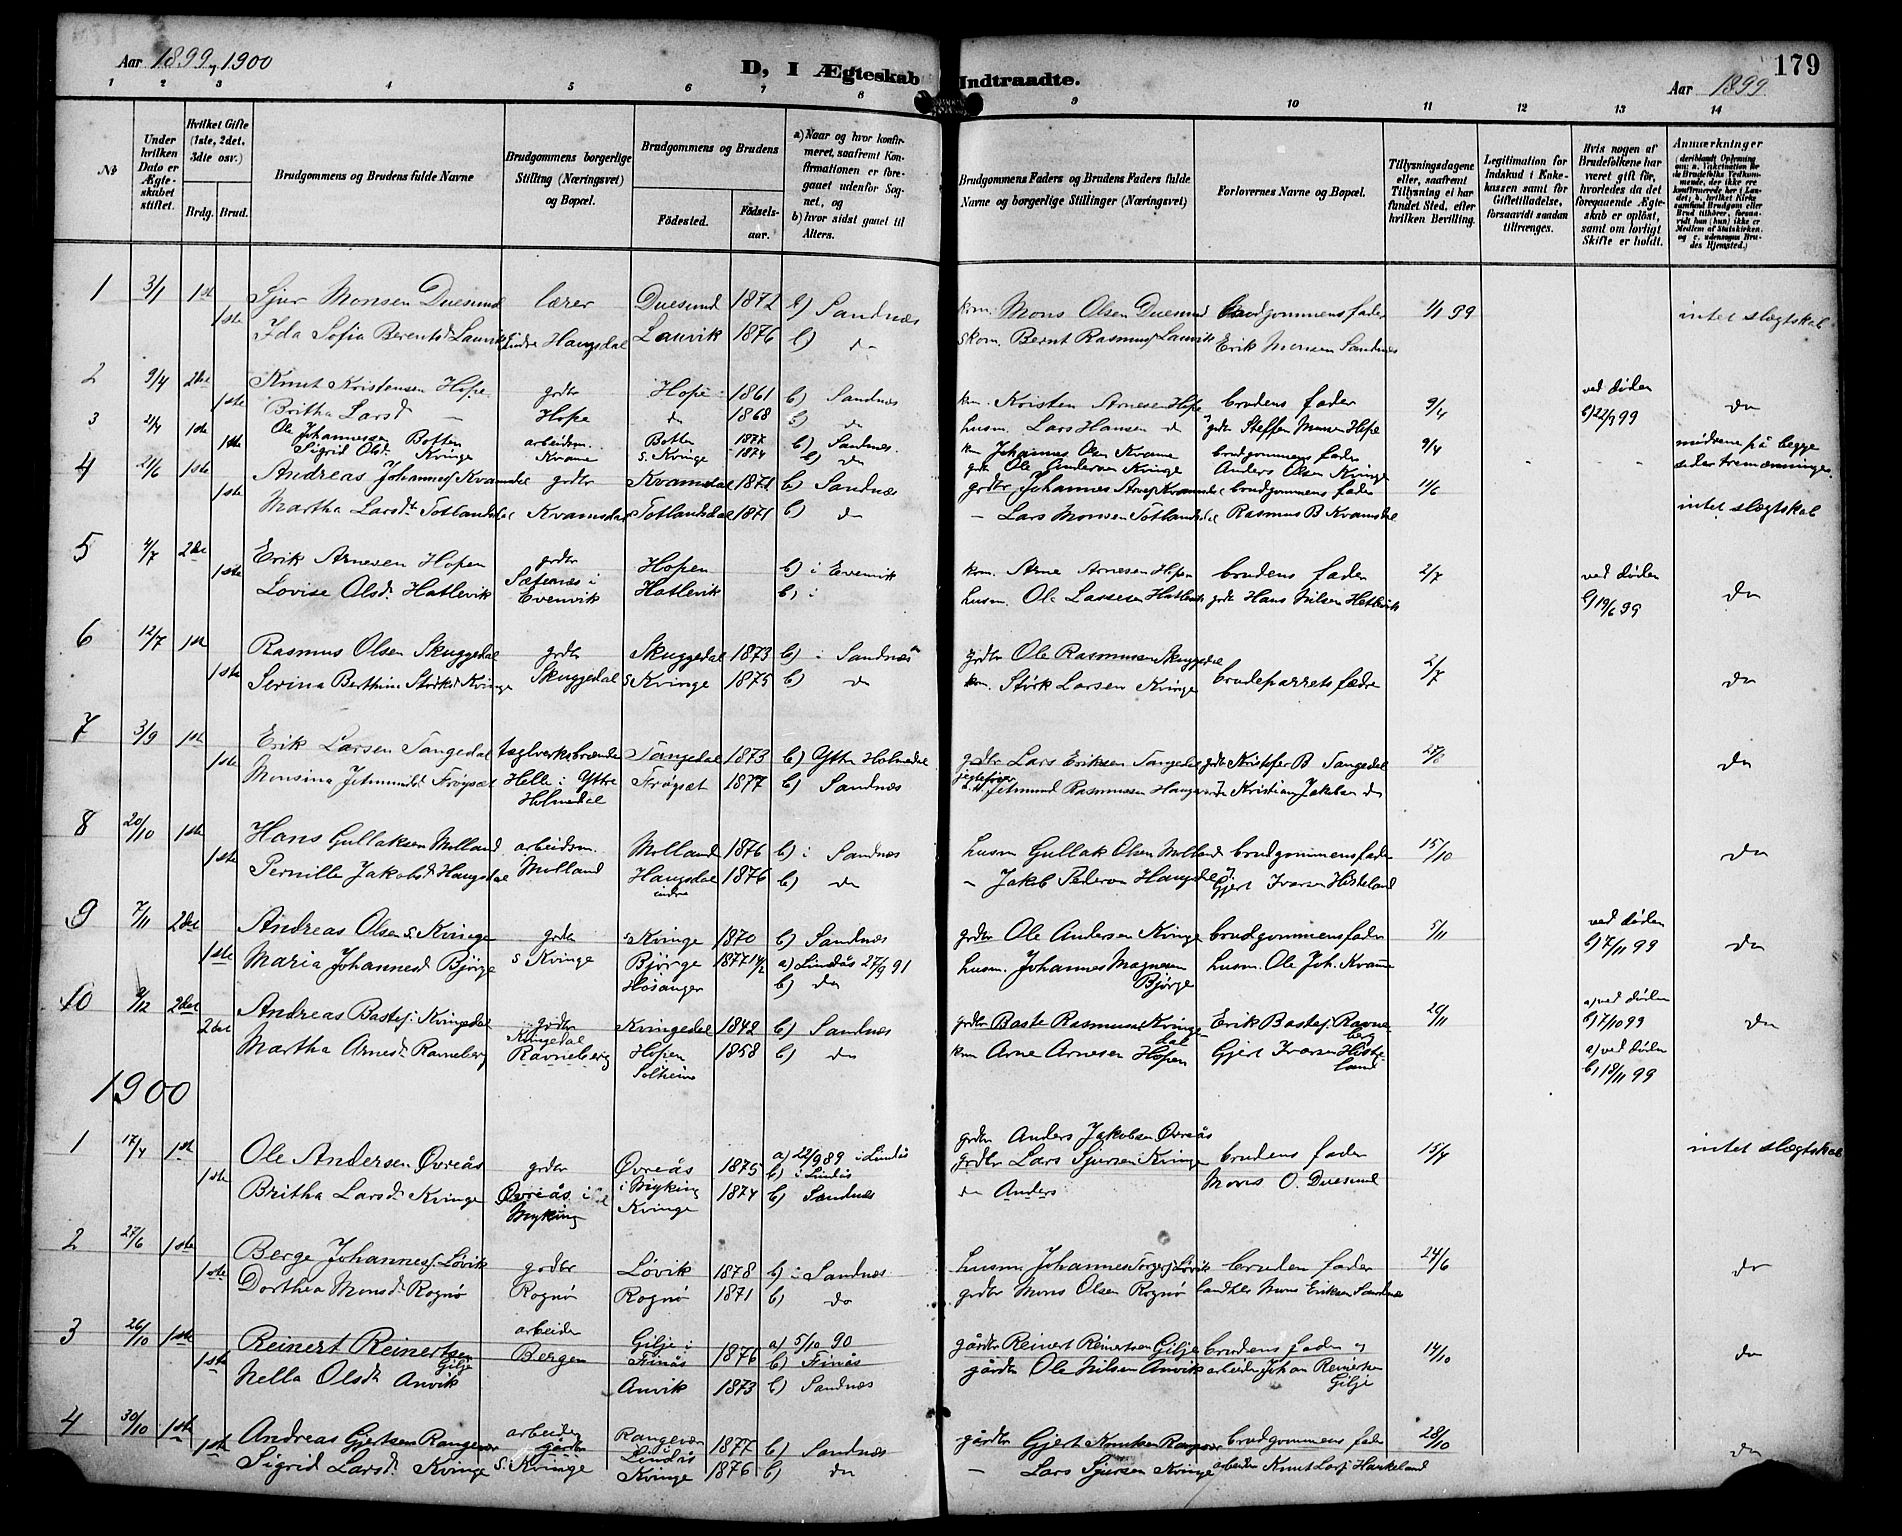 Aar 1899, 1900
D, I Ægteskab Indtraadte.
179
Aar 1899
1 2 3 4 5 6 7 8 9 10 11 12 13 14
No
Under hvilken Dato er Ægteskabet stiftet.
Hvilket Gifte (1ste, 2det, 3die osv.)
Brdg. Brud.
Brudgommens og Brudens fulde Navne
Brudgommens borgerlige Stilling (Næringsvei) og Bopæl.
Brudgommens og Brudens
Fødested.
Fødselsaar.
a) Naar og hvor konfirmeret, saafremt Konfirmationen er foregaaet udenfor Sognet, og
b) hvor sidst gaaet til Alters.
Brudgommens Faders og Brudens Faders fulde Navne og borgerlige Stillinger (Næringsvei)
Forlovernes Navne og Bopæl.
Tillysningsdagene eller, saafremt Tillysning ei har fundet Sted, efter hvilken Bevilling.
Legitimation for Indskud i Enkekassen samt for Giftetilladelse, forsaavidt saadan tiltrænges.
Hvis nogen af Brudefolkene har været gift før, hvorledes da det foregaaende Ægteskab er opløst, samt om lovligt Skifte er holdt.
Anmærkninger
1 3/1 1ste Sjur Monsen Duesund lærer Duesund 1872 b) Sandnæs kom. Mons Olsen Duesund brudgommens fader 1/1 99 intet slægtskab
1ste Ida Sofia Berentsd. Lauvik Indre Haugsdal Lauvik 1876 b) do skom. Bernt Rasmus. Lauvik Erik Monsen Sandnæs
2 9/4 2det Knut Kristensen Hope grdbr Hope 1861 b) Sandnæs km. Kristen Arnesen Hope brudens fader 9/4 ved døden do
1ste Britha Larsd. — Hope do 1868 b) do husm. Lars Hansen do grdbr Steffen Monsen Hope b) 22/3 99
3 21/4 1ste Ole Johannessen Botten arbeidsm. Botten 1877 b) Sandnæs. km Johannes Olsen Kvame brudgommens fader 9/4 mødrene på begge
1ste Sigrid Olsd. Kvinge Kvame s. Kvinge 1874 b) do grdb Ole Andersen Kvinge Anders Olsen Kvinge sider tremænninger.
4 21/6 1ste Andreas Johannesj Kvamsdal grdbr Kvamsdal 1871 b) Sandnæs grdbr Johannes Arnesj Kvamsdal brudgommens fader 11/6
1ste Martha Larsdt. Totlandsdal Kvamsdal Totlandsdal 1871 b) do — Lars Monsen Totlandsdal Rasmus B Kvamsdal intet slægtskab
5 4/7 2det Erik Arnesen Hopen grdbr Hopen b) i Evenvik km. Arne Arnesen Hopen brudens fader 2/7 ved døden
1ste Lovise Olsd. Hatlevik Sæternæs i Evenvik Hatlevik b) i husm. Ole Larsen Hatlevik grdb Hans Nilsen Hatlevik b) 19/6 99 do
6 12/7 1ste Rasmus Olsen Skuggedal grdbr Skuggedal 1873 b) i Sandnæs grdbr Ole Rasmussen Skuggedal 2/7
1ste Serina Berthine Størksd Kvinge Skuggedal s Kvinge 1875 b) do km. Størk Larsen Kvinge brudeparrets fædre do
7 3/9 1ste Erik Larsen Tangedal teglverksbrænder Tangedal 1873 b) Ytre Holmedal grdbr Lars Eriksen Tangedal grdb Kristofer B Tangedal 27/8 do
1ste Monsina Jetmundsd. Frøyset Helle i Ytre Holmedal Frøyset 1877 b) Sandnæs Jetmund Rasmussen Haugs Kristian Jakobsen do
8 20/10 1ste Hans Gullaksen Molland arbeidsm. Molland 1876 b) i Sandnæs husm Gullak Olsen Molland brudgommens fader 15/10 do
1ste Pernille Jakobsd Haugsdal Molland Haugsdal indre 1876 b) do — Jakob Pedersen Haugsdal Gjert Ivarsen Histeland
9 7/11 2det Andreas Olsen s. Kvinge grdbr s Kvinge 1870 b) Sandnæs grdbr Ole Andersen Kvinge brudgommens fader 5/11 ved døden
1ste Maria Johannesd Bjørge s Kvinge Bjørge Hosanger 1877 14/2 a) Lindås 27/9 91 b) do husm. Johannes Magnesen Bjørge husm. Ole Joh. Kvamme b) 7/11 99 do
10 9/12 2det Andreas Bastesj. Kvingedal grdbr Kvingedal Kvingedal 1842 b) Sandnæs grdbr Baste Rasmusen Kvingedal Erik Bastesj. Ravneberg 26/11 a) ved døden b) 7/10 99 do
2det Martha Arnesd. Ravneberg Ravneberg Hopen Solheim 1858 b) do km Arne Arnesen Hopen Gjert Ivarsen Histeland a) ved døden b) 18/11 99
1900
1 17/4 1ste Ole Andersen Øvreås grdbr Øvreås i Myking 1875 a) 22/9 89 i Lindås b) i Lindås grdbr Anders Jakobsen Øvreås brudens fader 15/4 intet slægtskab
1ste Britha Larsd. Kvinge Øvreås i Myking Kvinge 1874 b) Sandnæs grdbr Lars Sjursen Kvinge Mons O. Duesund
do Anders
2 27/6 1ste Berge Johannesj. Løvik grdbr Løvik 1878 b) i Sandnæs husm Johannes Torgersj Løvik brudens fader 24/6 do
1ste Dorthea Monsd. Rognø Rognø Rognø 1871 b) do grdbr Mons Olsen Rognø landhdl Mons Eriksen Sandnæs
3 26/10 1ste Reinert Reinertsen Gilje arbeider Gilje i Finås 1876 a) 5/10 90 b) Finås gårdbr Reinert Reinertsen Gilje brudens fader og 14/10 do
1ste Nella Olsd. Anvik Bergen Anvik 1873 b) Sandnæs gårdbr Ole Nilsen Anvik arbeider Johan Reinertsen Gilje
4 30/10 1ste Andreas Gjertsen Rangevær arbeider gårdbr Rangevær Lindås 1877 b) Sandnæs gårdbr Gjert Knutsen Rangevær brudgommens fader 28/10 do
1ste Sigrid Larsd. Kvinge s. Kvinge Kvinge 1876 b) do — Lars Sjursen Kvinge arbeider Knut Larsj Haukeland